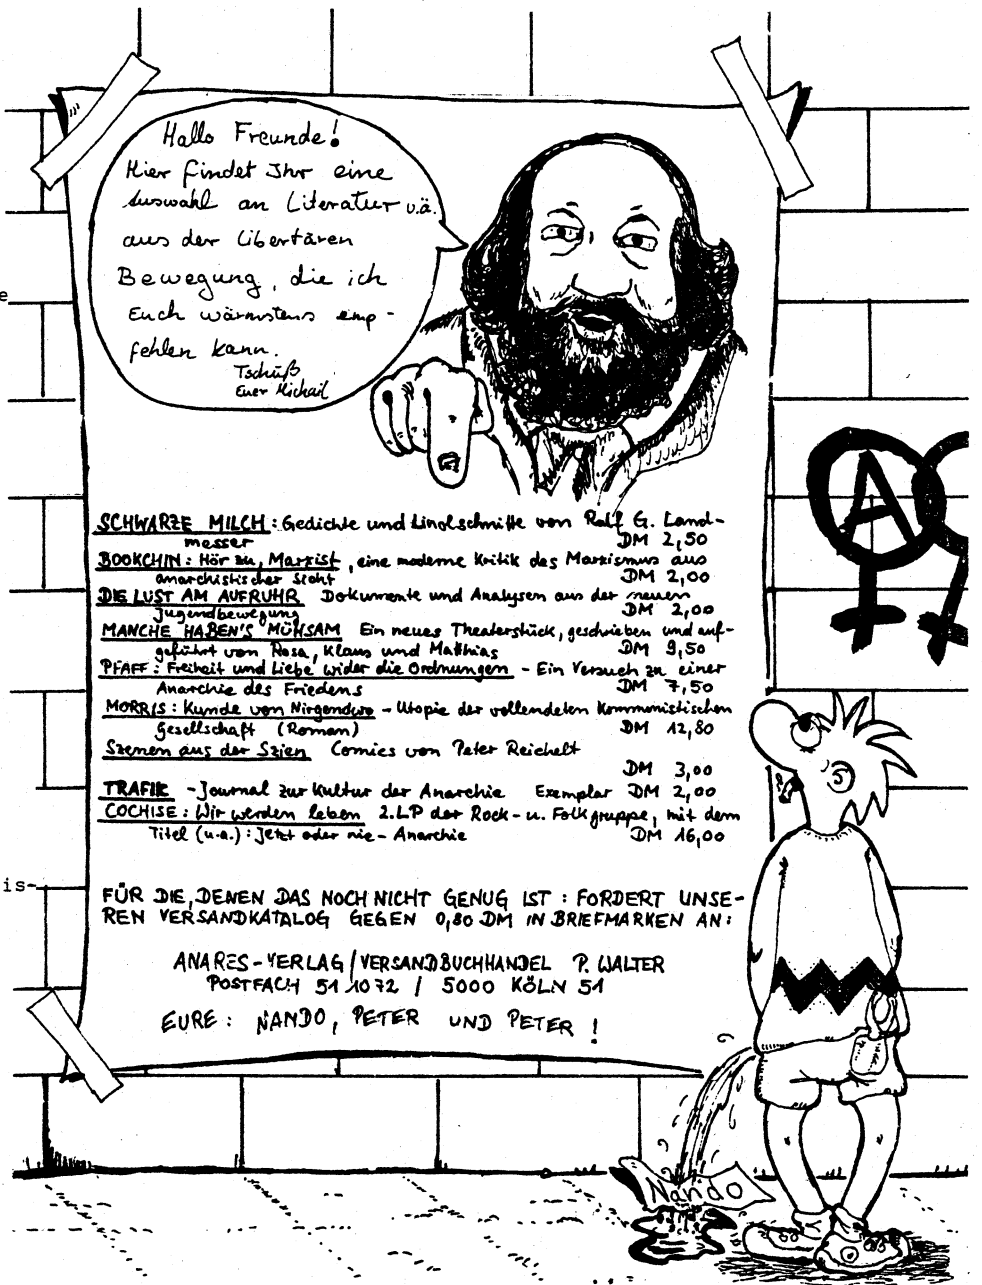 Hallo Freunde!
Hier findet Ihr eine
Auswahl an Literatur u.ä.
aus der Libertären
Bewegung, die ich
Euch wärmstens emp-
fehlen kann.
Tschüß
Euer Michail
e
SCHWARZE MILCH: Gedichte und Linolschnitte von Ralf G. Land-
messer DM 2,50
BOOKCHIN: Hör zu, Marxist, eine moderne Kritik des Marxismus aus
anarchistischer Sicht DM 2,00
DIE LUST AM AUFRUHR Dokumente und Analysen aus der neuen
Jugendbewegung DM 2,00
MANCHE HABEN'S MÜHSAM Ein neues Theaterstück, geschrieben und auf-
geführt von Rosa, Klaus und Matthias DM 9,50
PFAFF: Freiheit und Liebe wider die Ordnungen - Ein Versuch zu einer
Anarchie des Friedens DM 7,50
MORRIS: Kunde von Nirgendwo - Utopie der vollendeten kommunistischen
Gesellschaft (Roman) DM 12,80
Szenen aus der Szien Comics von Peter Reichelt
DM 3,00
TRAFIK - Journal zur Kultur der Anarchie Exemplar DM 2,00
COCHISE: Wir werden leben 2.LP der Rock- u. Folkgruppe, mit dem
Titel (u.a.): Jetzt oder nie - Anarchie DM 16,00
is-
FÜR DIE, DENEN DAS NOCH NICHT GENUG IST: FORDERT UNSE-
REN VERSANDKATALOG GEGEN 0,80 DM IN BRIEFMARKEN AN:
ANARES-VERLAG/VERSANDBUCHHANDEL P. WALTER
POSTFACH 51 10 72 / 5000 KÖLN 51
EURE: NANDO, PETER UND PETER!
A
Nando